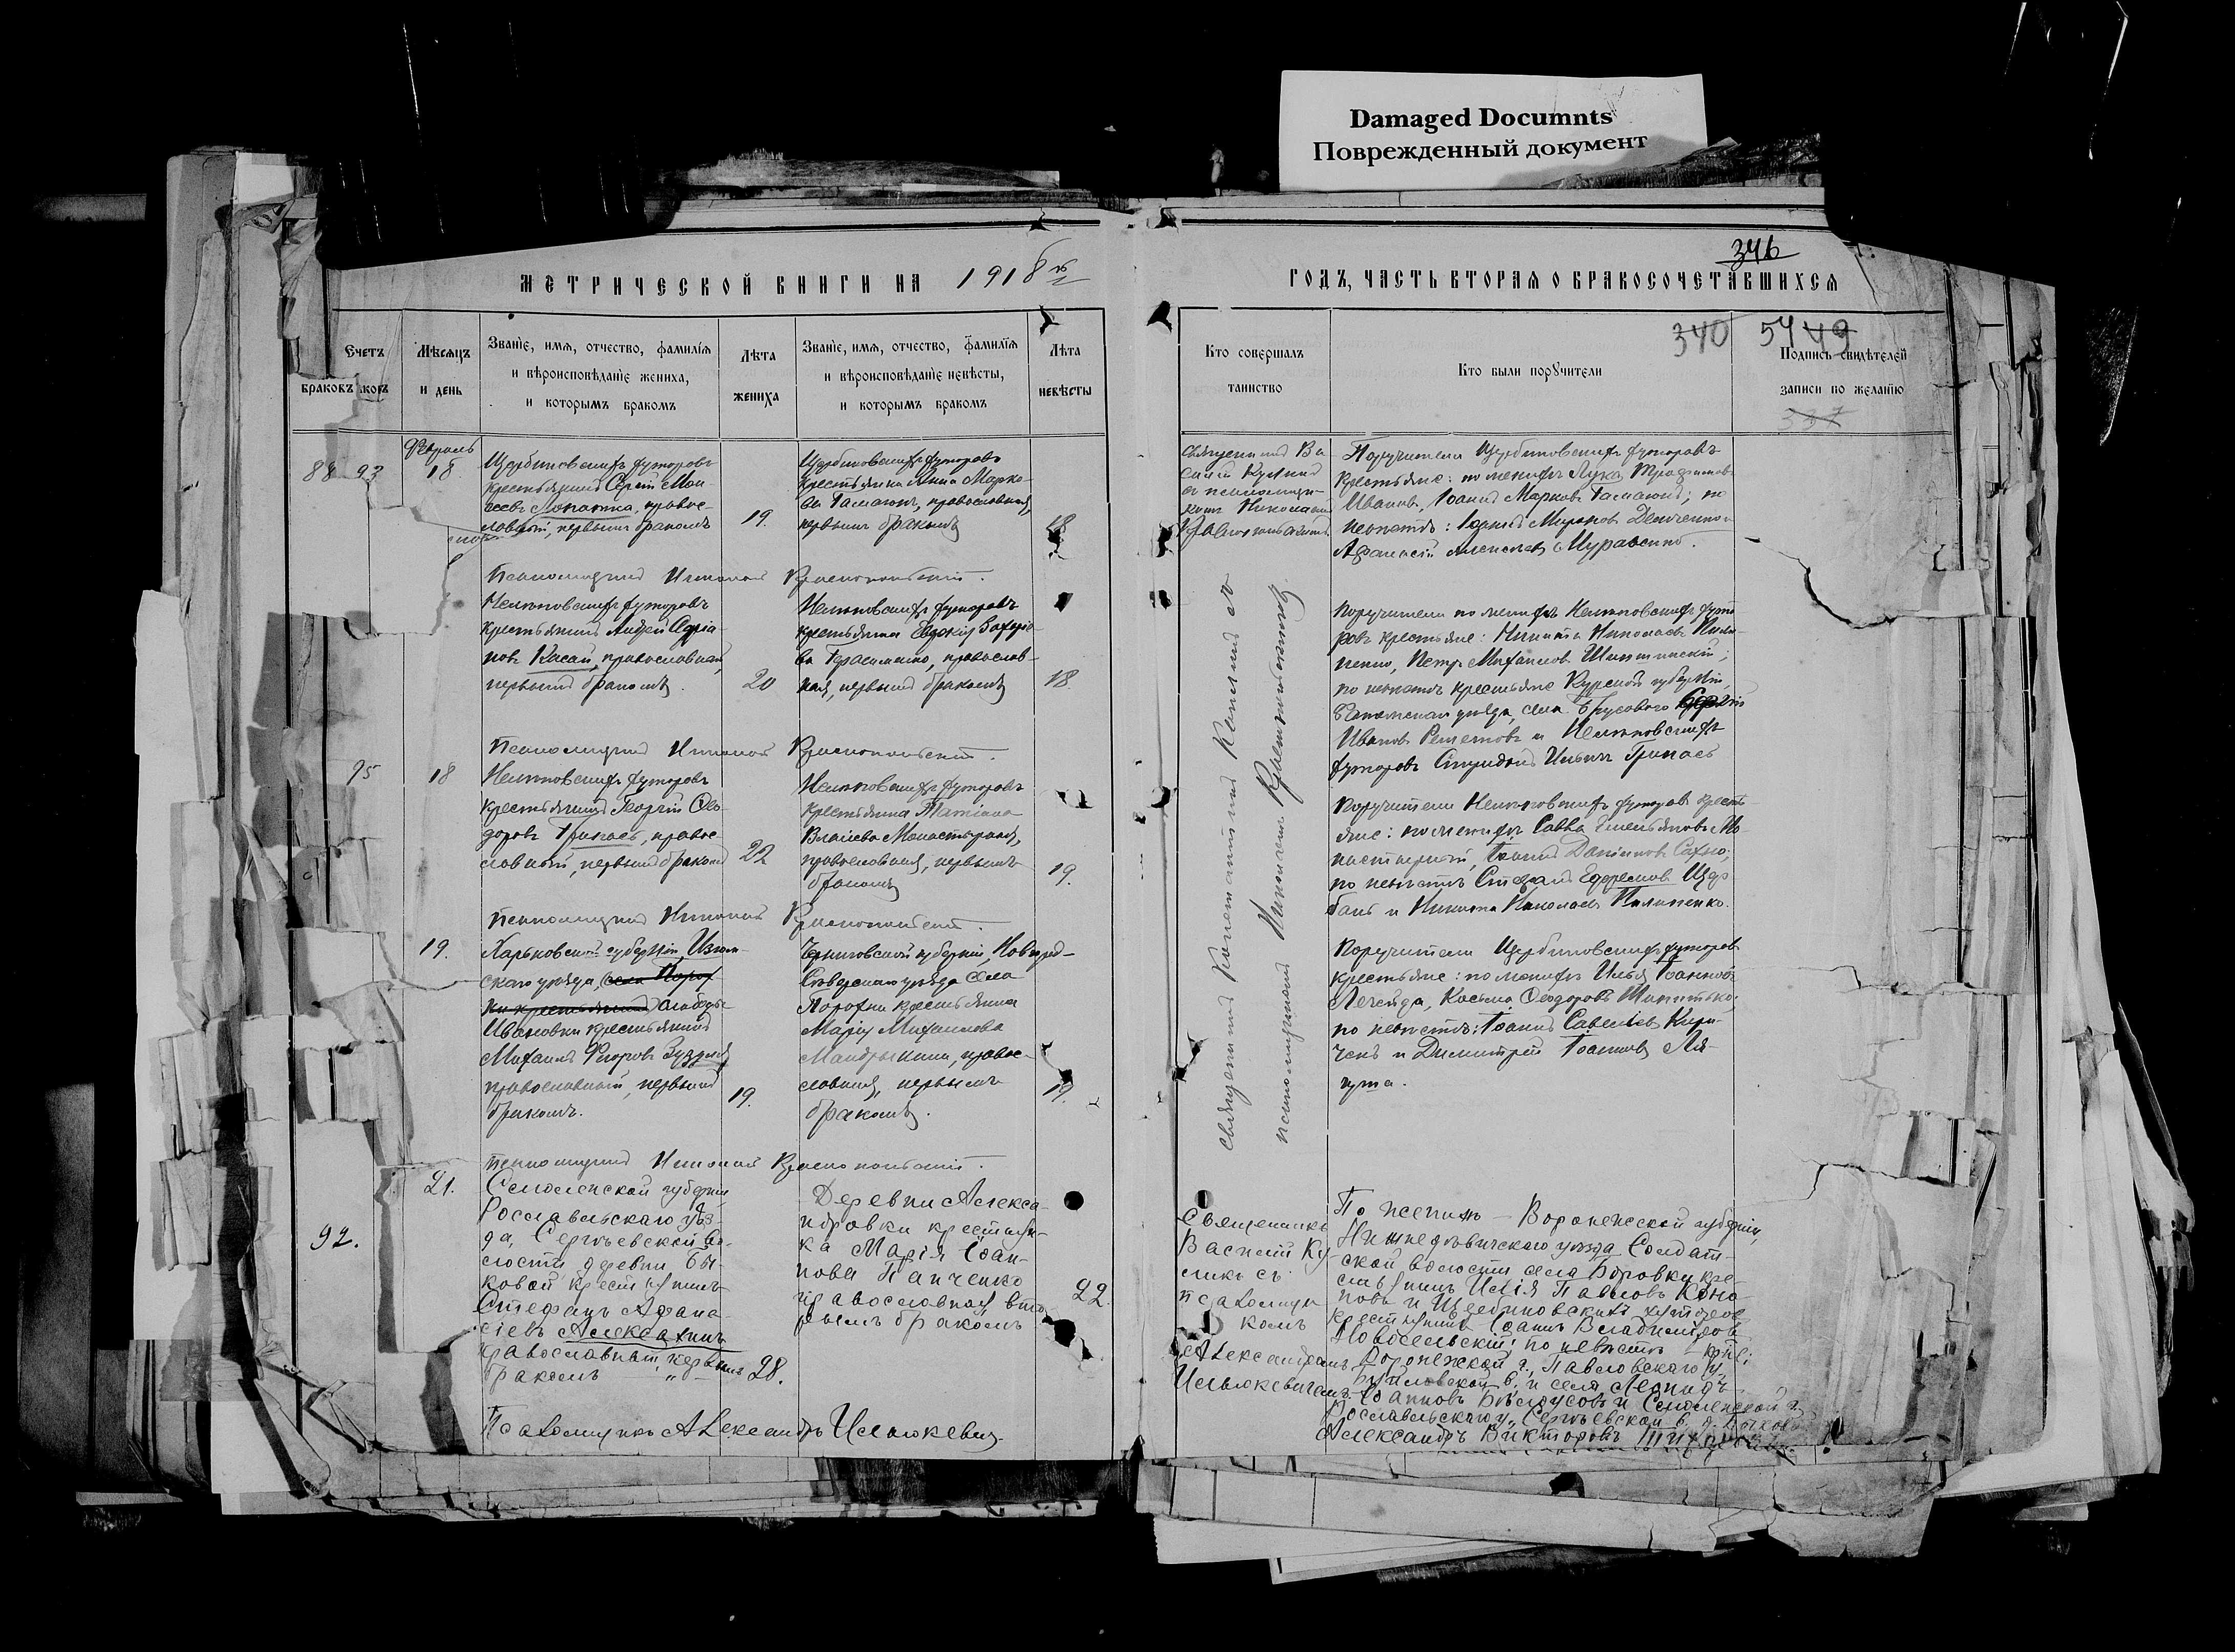 Damaged Documnts
Поврежденный документ
346
МЕТРИЧЕСКОЙ КНИГИ НА 1918
ГОДЪ, ЧАСТЬ ВТОРАЯ О БРАКОСОЧЕТАВШИХСЯ
340 5449
Счетъ
браковъ
Мѣсяцъ
и день
Званіе, имя, отчество, фамилія
и вѣроисповѣданіе жениха,
и которымъ бракомъ
Лѣта
жениха
Званіе, имя, отчество, фамилія
и вѣроисповѣданіе невѣсты,
и которымъ бракомъ
Лѣта
невѣсты
Кто совершалъ
таинство
Кто были поручители
Подпись свидѣтелей
записи по желанію
337
Февраль
88 93 18
Щербиновскихъ хуторовъ
крестьянинъ Сергій Мои-
сеевъ Лопатка, правос-
лавный, первымъ бракомъ
19.
Щербиновскихъ хуторовъ
крестьянка Анна Марко-
ва православная,
первымъ бракомъ
18
Священникъ Ва
силій Куликъ
съ псаломщи-
комъ Николаемъ
Поручители Щербиновскихъ хуторовъ
крестьяне: по женихѣ Лука Трофимовъ
Ивановъ, Іоаннъ Марковъ; по
невѣстѣ: Іоаннъ Мироновъ Демченко и
Аѳанасій Муравенко.
Псаломщикъ Николай Краснопольскій.
Нелѣповскихъ хуторовъ
крестьянинъ Андрей Адріа-
новъ Касай, православный,
первымъ бракомъ.
20
Нелѣповскихъ хуторовъ
крестьянка Евдокія Захарье-
ва Герасименко, православ-
ная, первымъ бракомъ
18.
Поручители по женихѣ Нелѣповскихъ хуто
ровъ крестьяне: Никита Николаевъ Пили-
пенко, Петръ Михаиловъ;
по невѣстѣ крестьяне Курской губерніи,
уѣзда, села Брусового
Ивановъ Решетовъ и Нелѣповскихъ
хуторовъ Спиридонъ Ильинъ Припасъ
Псаломщикъ Николай Краснопольскій.
95 18
Нелѣповскихъ хуторовъ
крестьянинъ Георгій Ѳео-
доровъ Припасъ, правос-
лавный, первымъ бракомъ
22
Нелѣповскихъ хуторовъ
крестьянка Татіана
Власіева Монастырная,
православная, первымъ
бракомъ
19.
Поручители Нелѣповскихъ хуторовъ кресть-
яне: по женихѣ Савва Емельяновъ Мо-
настырный, Іоаннъ Даніиловъ Сахно;
по невѣстѣ Стефанъ Ефремовъ Щер
бань и Никита Николаевъ Пилипенко.
Псаломщикъ Николай Краснопольскій.
19.
Харьковской губерніи, Изюм-
скаго уѣзда,
слободы
Ивановки крестьянинъ
Михаилъ
православный, первымъ
бракомъ.
19.
Черниговской губерніи, Новгород-
Сѣверскаго уѣзда села
Порохни крестьянка
Марія Михаилова
правос-
лавная, первымъ
бракомъ.
19.
Поручители Щербиновскихъ хуторовъ
крестьяне: по женихѣ Илья Іоанновъ
Легейда, Косьма Ѳеодоровъ Микитько;
по невѣстѣ: Іоаннъ Савельевъ Кири-
ченъ и Димитрій Іоанновъ
Священникъ Константинъ со
псаломщикомъ Николаемъ Краснопольскимъ.
Псаломщикъ Николай Краснопольскій.
92. 21.
Смоленской губерніи
Рославльскаго уѣз-
да, Сергѣевской во-
лости деревни Бы-
ковой крестьянинъ
Стефанъ Аѳана-
сіевъ Алексахинъ
православный первымъ
бракомъ
28.
Деревни Алекса-
ндровки крестьян-
ка Марія Іоан-
нова Панченко
православная вто-
рымъ бракомъ
22.
Священникъ
Василій Ку-
ликъ съ
псаломщи
комъ
Александромъ
Ильюкевичемъ
По женихѣ — Воронежской губерніи,
Нижнедѣвичскаго уѣзда Солдат-
ской волости села Боровки кре-
стьянинъ Илія Павловъ Коно-
новъ и Щербиновскихъ хуторовъ
крестьянинъ Іоаннъ Владиміровъ
Новосельскій; по невѣстѣ
Воронежской г., Павловскаго у.
в. и села Леонидъ
Іоанновъ Бѣлоусовъ и Смоленской г.
Рославльскаго у. Сергѣевской в. д. Бычковой
Александръ Викторовъ
Псаломщикъ Александръ Ильюкевичъ.